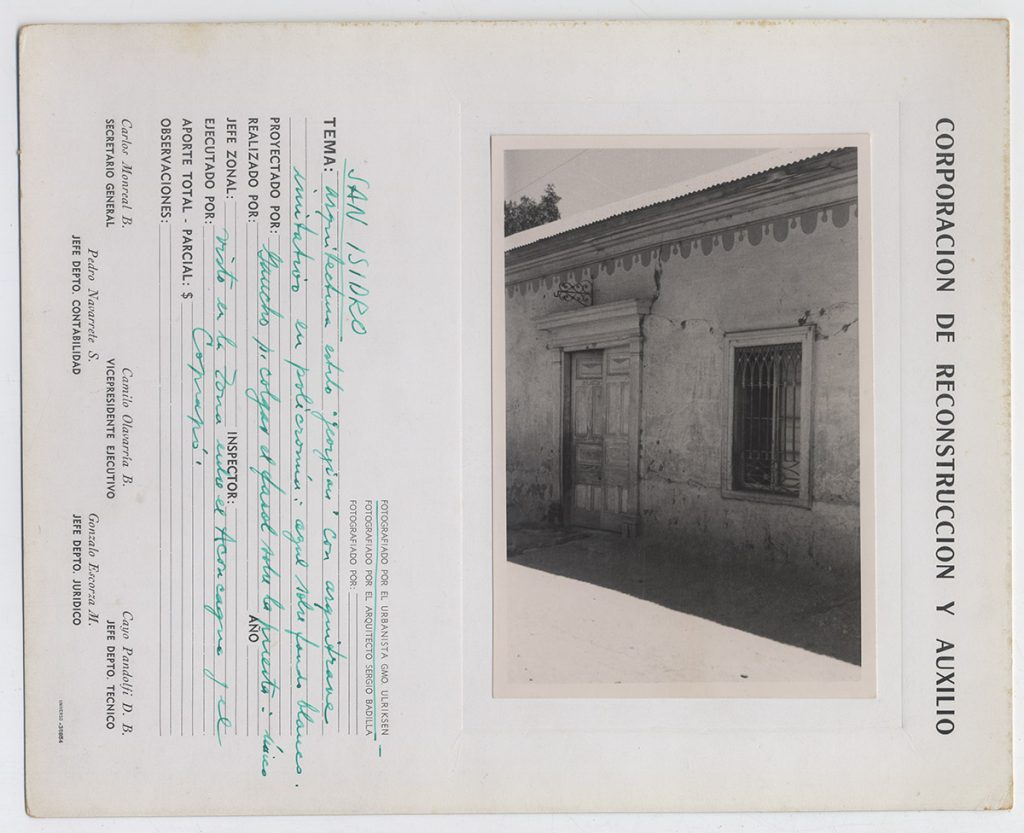 CORPORACION DE RECONSTRUCCION Y AUXILIO
FOTOGRAFIADO POR EL URBANISTA GMO. ULRIKSEN
FOTOGRAFIADO POR EL ARQUITECTO SERGIO BADILLA
FOTOGRAFIADO POR:
SAN ISIDRO
TEMA: arquitectura estilo "georgian" con arquitrave
imitativo en policromía: azul sobre fondo blanco.
PROYECTADO POR:
REALIZADO POR: Gancho p. colgar el farol sobre la puerta: único
AÑO
JEFE ZONAL: INSPECTOR:
EJECUTADO POR: visto en la zona entre el Aconcagua y el
APORTE TOTAL - PARCIAL: $ Copiapó
OBSERVACIONES:
Carlos Monreal B. Camilo Olavarría B. Cayo Pandolfi D. B.
SECRETARIO GENERAL VICEPRESIDENTE EJECUTIVO JEFE DEPTO. TECNICO
Pedro Navarrete S. Gonzalo Escorza M.
JEFE DEPTO. CONTABILIDAD JEFE DEPTO. JURIDICO